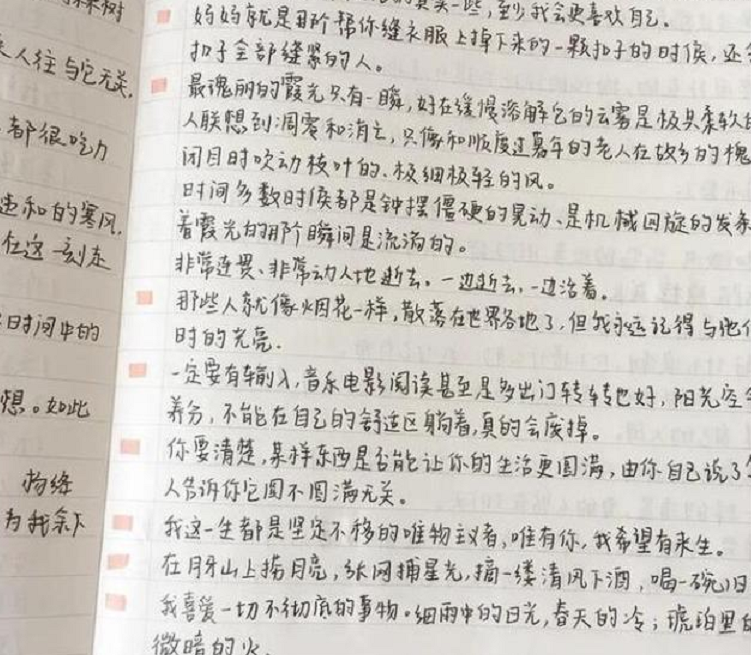 来人往与它无关.
都很吃力
和的寒风,
在这一刻走
时间中的
想。如此
为我余下
些,至少我会更喜欢自己.
妈妈就是那个帮你缝衣服上掉下来的一颗扣子的时候,还
扣子全部缝紧的人。
最瑰丽的霞光只有一瞬,好在缓慢溶解它的云雾是极其柔软
人联想到凋零和消亡,只像和顺度过暮年的老人在故乡的槐
闭目时吹动枝叶的、极细极轻的风。
时间多数时候都是钟摆僵硬的晃动、是机械回旋的发条
着霞光的那个瞬间是流淌的。
非常连贯、非常动人地逝去。一边逝去,一边活着。
那些人就像烟花一样,散落在世界各地了,但我永远记得与他
时的光亮.
一定要有输入,音乐电影阅读甚至是多出门转转也好,阳光空
养分,不能在自己的舒适区躺着,真的会废掉。
你要清楚,某样东西是否能让你的生活更圆满,由你自己说了
人告诉你它圆不圆满无关。
我这一生都是坚定不移的唯物主义者,唯有你,我希望有来生。
在月牙山上捞月亮,纸网捕星光,摘一缕清风下酒,喝一碗旧
我喜爱一切不彻底的事物。细雨中的日光,春天的冷;琥珀里
微暗的火.